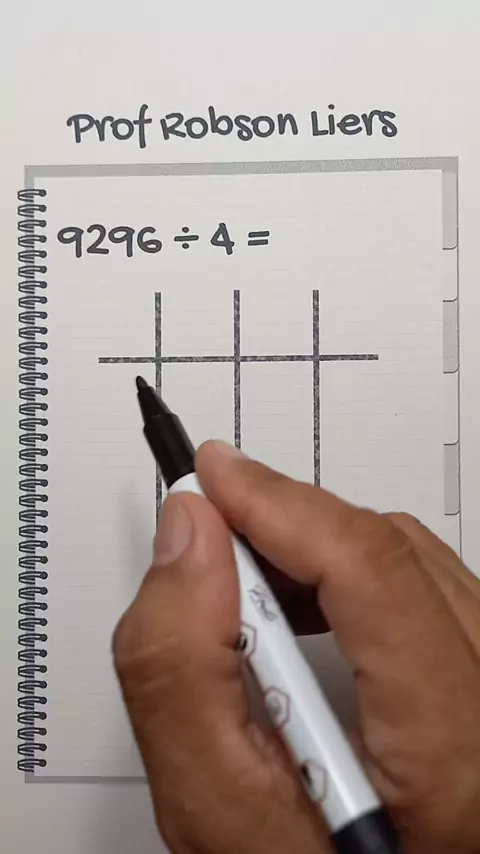 Prof Robson Liers
9296 ÷ 4 =